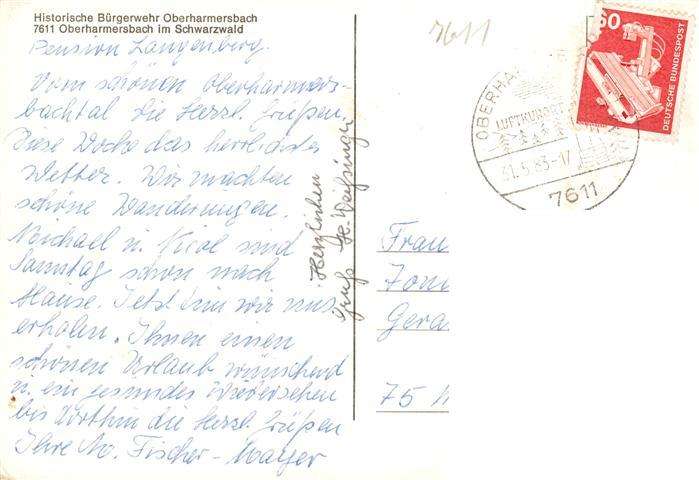 Historische Bürgerwehr Oberharmersbach
7611 Oberharmersbach im Schwarzwald
Pension Langenberg.
Vom schönen Oberharmers-
bachtal die Herzl. Grüßen.
Diese Woche das herrlichste
Wetter. Wir machten
schöne Wanderungen.
Michael u. sind
Samstag schon nach
Hause. Jetzt tun wir uns
erholen. Ihnen einen
schönen Urlaub wünschend
u. ein gesundes Wiedersehen
bis dorthin die Herzl. Grüßen
Ihre M. Fischer - Mayer
Herzlichen
Gruß H. Weißinger
7611
60
DEUTSCHE BUNDESPOST
OBERHA
LUFTKURORT
31.5.83-17
7611
Frau
Gera
75